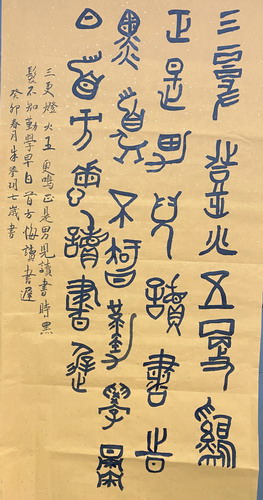 三更燈火五更鷄
正是男兒讀書時
黑髮不知勤學早
白首方悔讀書遲
三更燈火五更鳴正是男兒讀書時黑
髮不知勤學早白首方悔讀書遲
癸卯春月朱 七歲書